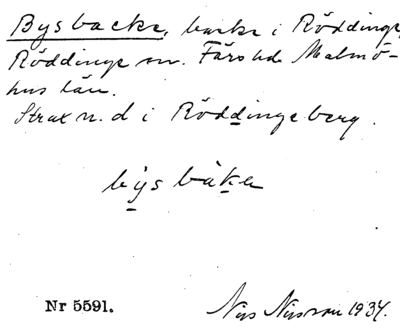 Bysbacke, backe i Röddinge,
Röddinge sn. Färs hd Malmö-
hus län.
Strax n. d i Röddingeberg.
býs bàkæ
Nr 5591.
Nils Nilsson 1934.